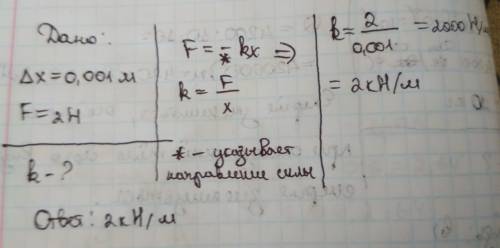 Дано:
Δx=0,001м
F=2Н
k-?
F=-kx ⇒
*
k=F/x
* - указывает
направление силы
k=2/0,001=2000Н/м
=2кН/м
Ответ: 2кН/м